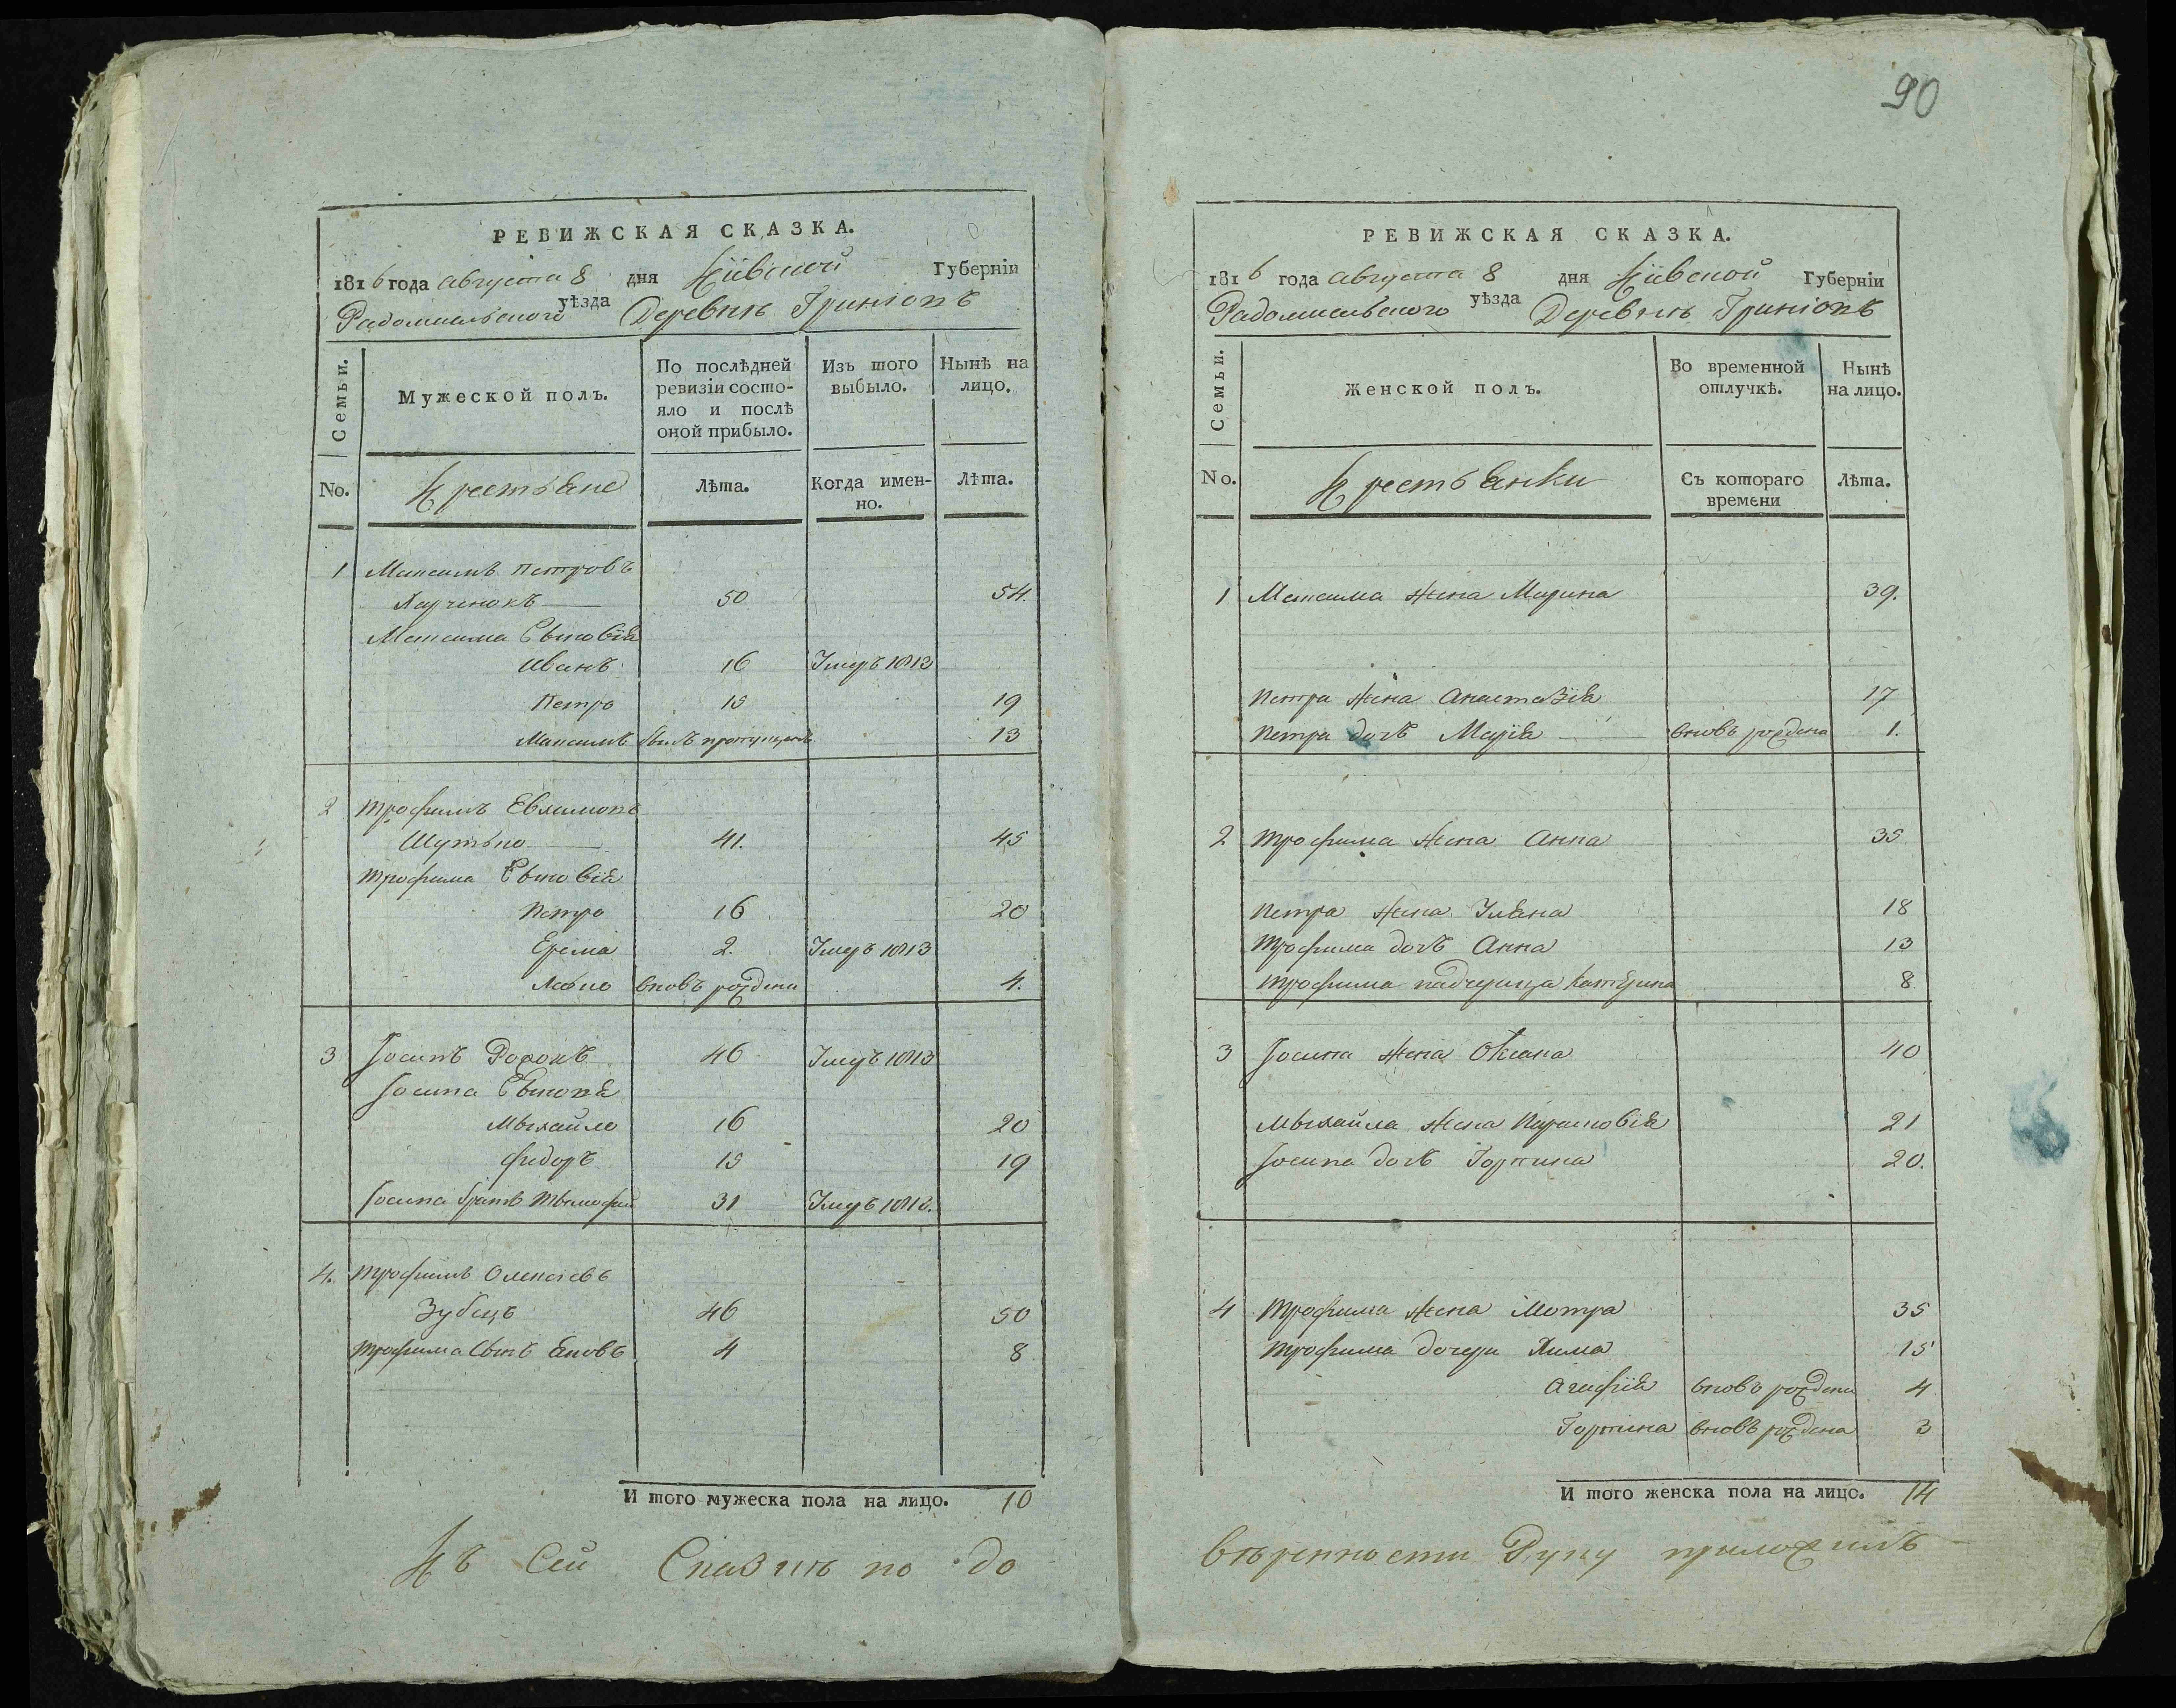 РЕВИЖСКАЯ СКАЗКА.
1816 года августа 8 дня Кіівской Губерніи
Радомисльского уѣзда Деревнѣ
Семьи. Мужеской полъ. По послѣдней ревизіи состояло и послѣ оной прибыло. Изъ того выбыло. Нынѣ на лицо.
No. Крестьяне Лѣта. Когда именно. Лѣта.
1 Максимъ Петровъ
Харченокъ 50 54.
Максима Сыновія
Иванъ 16 Умеръ 1813
Петро 15 19
Максимъ былъ пропущенъ 13
2 Трофимъ
41. 45
Трофима Сыновія
Петро 16 20
Ерема 2. Умеръ 1813
вновь рожденъ 4.
3 Іосипъ 46 Умеръ 1813
Іосипа
Мыхайло 16 20
Федоръ 15 19
Іосипа братъ Тымофей 31 Умеръ
4. Трофимъ Олексіевъ
Зубецъ 46 50
Трофима Сынъ Яковъ 4 8
И того мужеска пола на лицо. 10
Къ Сей Сказкѣ по до
90
РЕВИЖСКАЯ СКАЗКА.
1816 года августа 8 дня Кіівской Губерніи
Радомисльского уѣзда Деревнѣ
Семьи. Женской полъ. Во временной отлучкѣ. Нынѣ на лицо.
No. Крестьянки Съ котораго времени Лѣта.
1 Максима жена Марина 39.
Петра жена Анастазія 17
Петра дочь Марія вновь рождена 1.
2 Трофима жена Анна 35
Петра жена Уляна 18
Трофима дочь Анна 13
Трофима падчерица Катерина 8
3 Іосипа жена Оксана 40
Мыхайла жена Парасковія 21
Іосипа дочь Горпина 20.
4 Трофима жена Мотра 35
Трофима дочери Хима 15
Агафія вновь рождена 4
Горпина вновь рождена 3
И того женска пола на лицо. 14
вѣренности Руку приложилъ